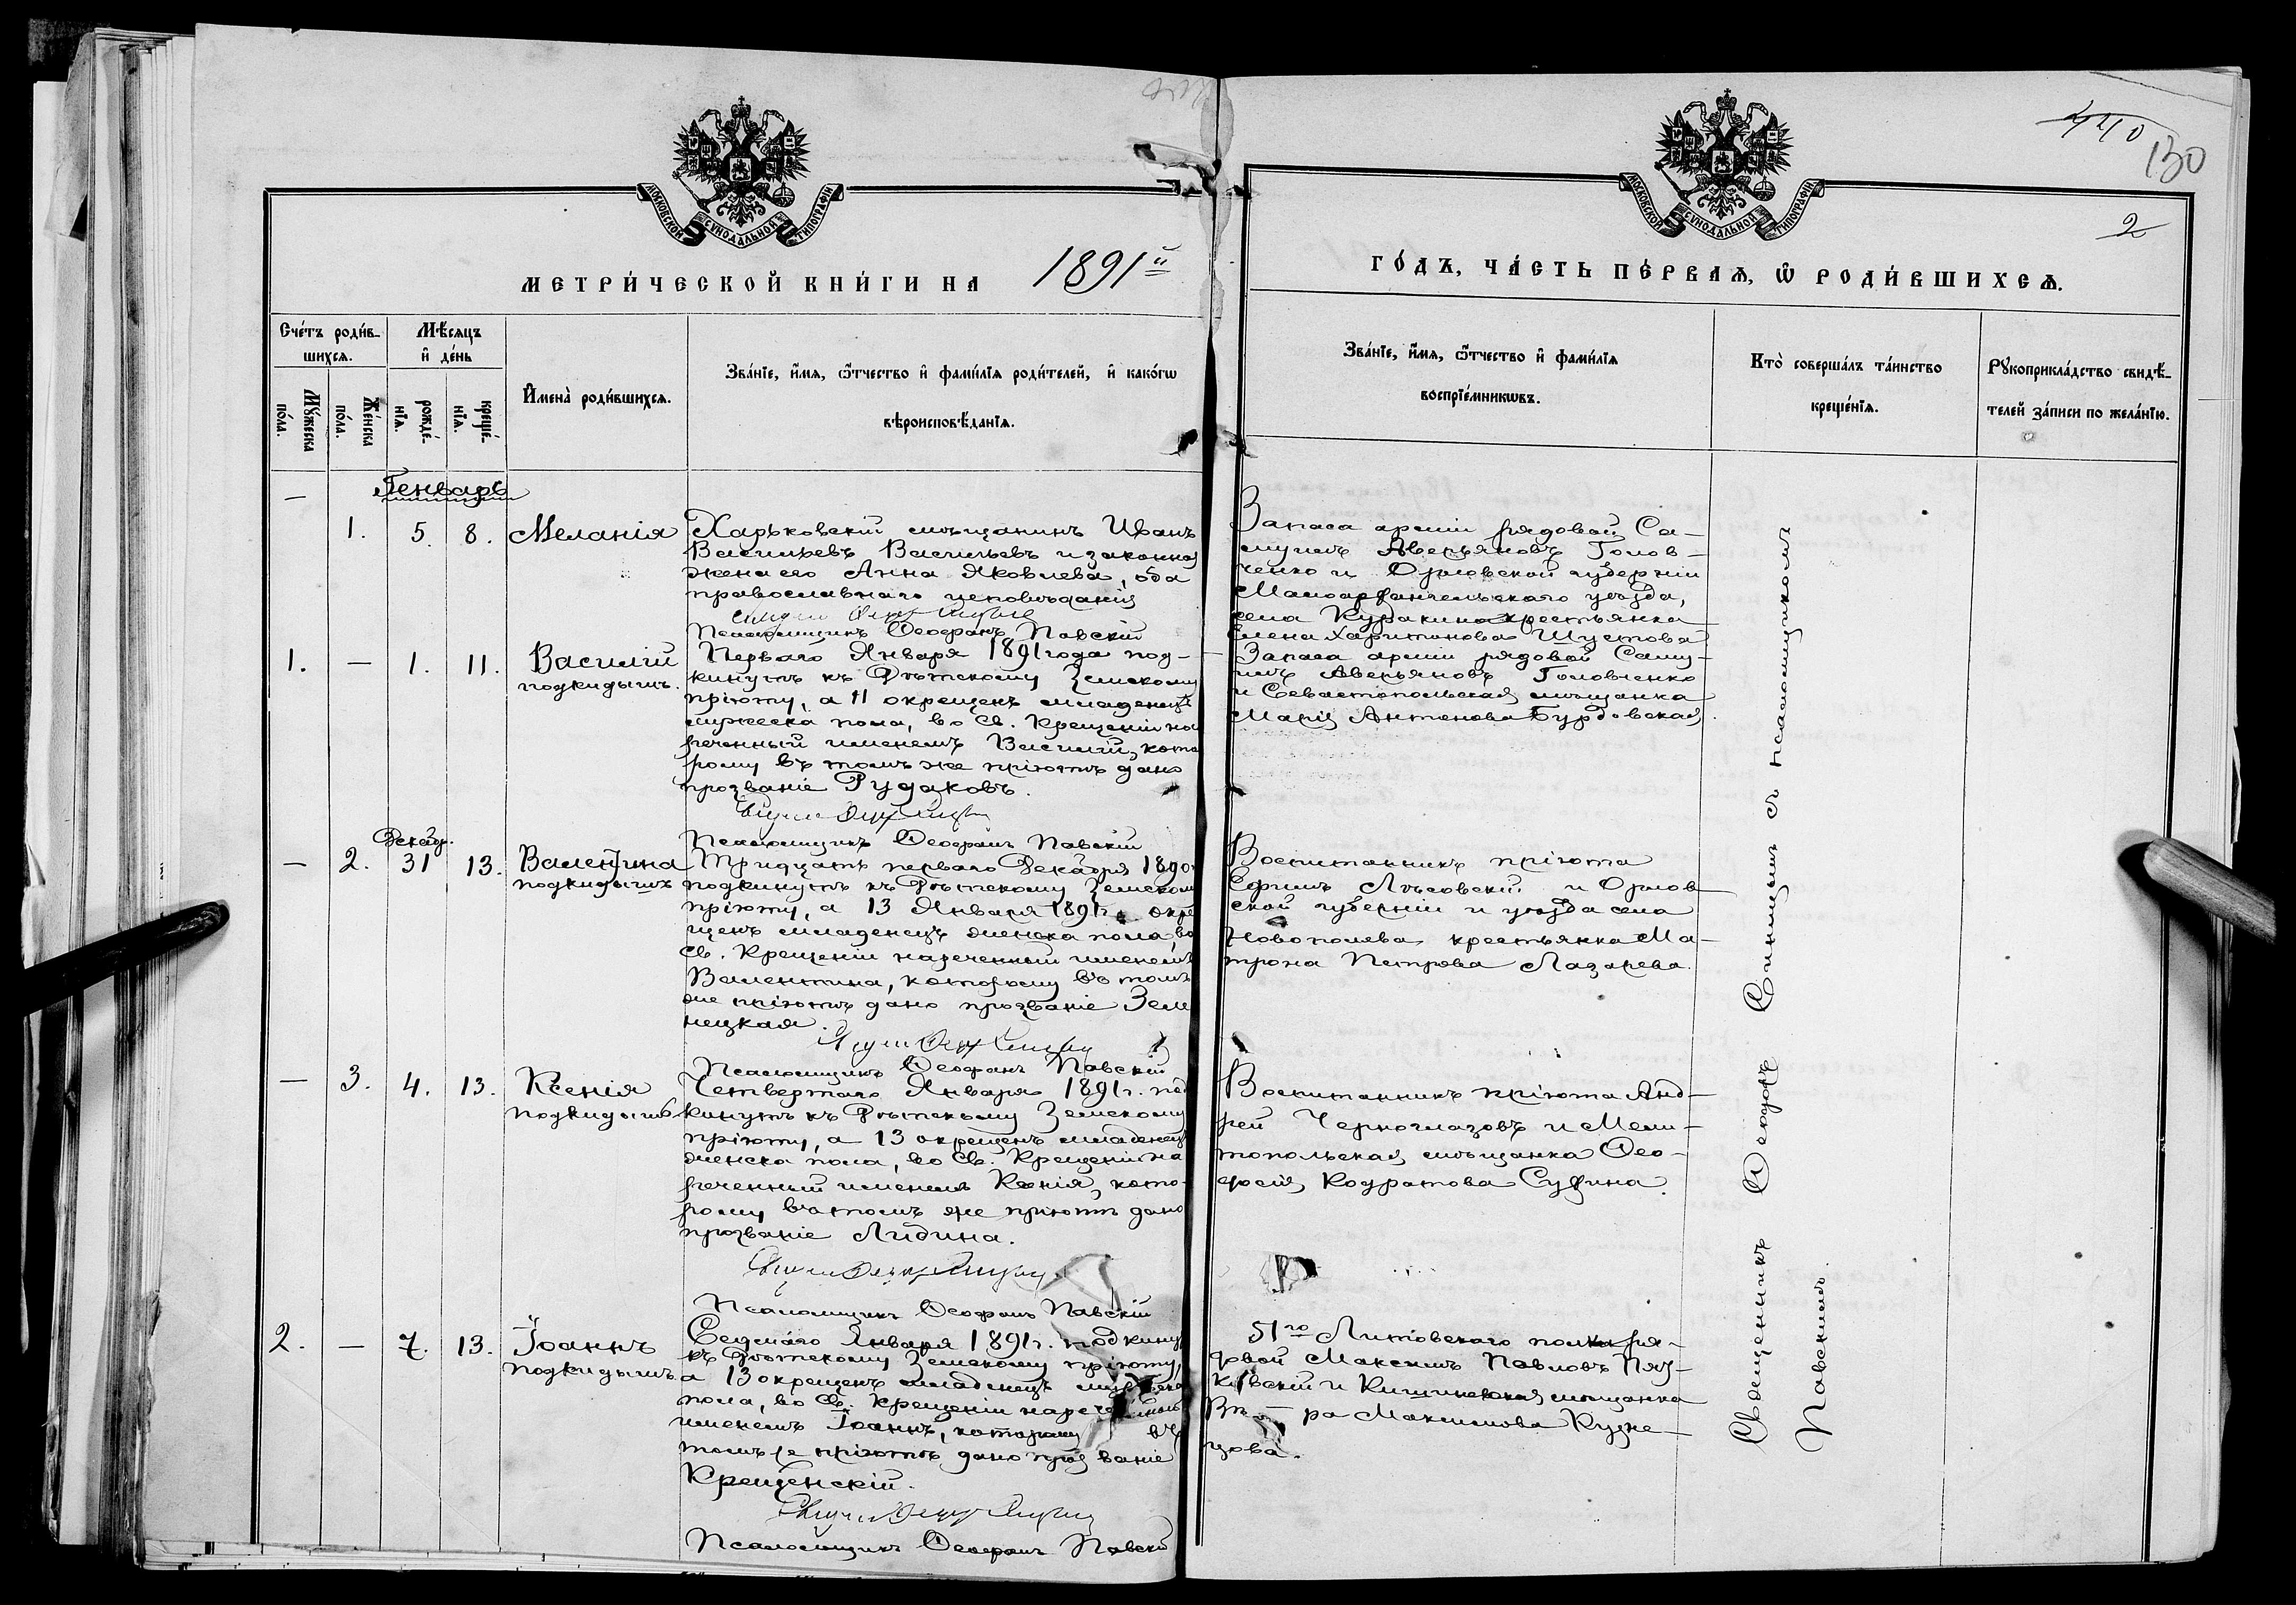 440
130
2
МОСКОВСКОЙ СѴНОДАЛЬНОЙ ТИПОГРАФІИ
МОСКОВСКОЙ СѴНОДАЛЬНОЙ ТИПОГРАФІИ
МЕТРИ́ЧЕСКОЙ КНИ́ГИ НА 1891й
ГО́ДЪ, ЧА́СТЬ ПЕ́РВАѦ, Ѡ҆ РОДИ́ВШИХСѦ.
Сче́тъ роди́в-
шихсѧ.
Мꙋ́жеска
по́ла.
Же́нска
по́ла.
Мѣ́сѧцъ
и҆ де́нь
рожде́-
нїѧ.
креще́-
нїѧ.
И҆мена̀ роди́вшихсѧ.
Зва́нїе, и҆́мѧ, ѻ҆́тчество и҆ фами́лїѧ роди́телей, и҆ како́гѡ
вѣроисповѣ́данїѧ.
Зва́нїе, и҆́мѧ, ѻ҆́тчество и҆ фами́лїѧ
воспрїе́мникѡвъ.
Кто̀ соверша́лъ та́инство
креще́нїѧ.
Рꙋкоприкла́дство свидѣ́-
телей за́писи по жела́нїю.
Генварь
— 1. 5. 8. Меланія
Харьковскій мѣщанинъ Иванъ
Васильевъ Васильевъ и законная
жена его Анна Яковлева, оба
православнаго исповѣданія
Псаломщикъ Ѳеофанъ Павскій
Запаса арміи рядовой Са-
муилъ Аверьяновъ Голов-
ченко и Орловской губерніи
Малоархангельскаго уѣзда,
села Куракина крестьянка
Елена Харитонова Шустова
1. — 1. 11. Василій
подкидышъ.
Перваго Января 1891 года под-
кинутъ къ Дѣтскому Земскому
пріюту, а 11 окрещенъ младенецъ
мужеска пола, во Св. Крещеніи на
реченный именемъ Василій, кото
рому въ томъ же пріютѣ дано
прозваніе Рудаковъ.
Псаломщикъ Ѳеофанъ Павскій
Запаса арміи рядовой Саму-
илъ Аверьяновъ Головченко
и Севастопольская мѣщанка
Марія Антонова Бурдовская.
Декабр.
— 2. 31 13. Валентина
подкидышъ
Тридцать перваго Декабря 1890
подкинутъ къ Дѣтскому Земском
пріюту, а 13 Января 1891 г. окре
щенъ младенецъ женска пола, во
Св. Крещеніи нареченный именемъ
Валентина, которому въ томъ
же пріютѣ дано прозваніе Зем
нецкая.
Псаломщикъ Ѳеофанъ Павскій
Воспитанникъ пріюта
Ефимъ Лѣсовскій и Орлов
ской губерніи и уѣзда села
Новополева крестьянка Ма-
трона Петрова Лазарева.
— 3. 4. 13. Ксенія
подкидышъ
Четвертаго Января 1891 г. под
кинутъ къ Дѣтскому Земскому
пріюту, а 13 окрещенъ младенецъ
женска пола, во Св. Крещеніи на
реченный именемъ Ксенія, кото-
рому въ томъ же пріютѣ дано
прозваніе Лидина.
Псаломщикъ Ѳеофанъ Павскій
Воспитанникъ пріюта Анд-
рей Черноглазовъ и Мели-
топольская мѣщанка Ѳео-
досія Кодратова Сухина.
2. — 7. 13. Іоаннъ
подкидышъ
Седмаго Января 1891 г. подкину
къ Дѣтскому Земскому пріюту,
а 13 окрещенъ младенецъ мужеска
пола, во Св. Крещеніи нареченный
именемъ Іоаннъ, которому въ
томъ же пріютѣ дано прозваніе
Крещенскій.
Псаломщикъ Ѳеофанъ Павскій
51го Литовскаго полка ря-
довой Максимъ Павловъ
и Кишиневская мѣщанка
Вѣ — ра Максимова Кузне-
цова.
Священникъ Ѳеодоръ Синицынъ съ псаломщикомъ
Павскимъ.